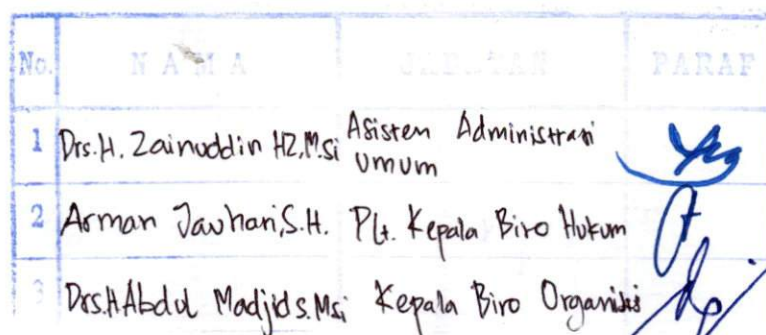 No. NAMA JABATAN PARAF
1 Drs. H. Zainuddin HZ, M.si Asisten Administrasi
umum
2 Arman Jauhari, S.H. Plt. Kepala Biro Hukum
3 Drs. H Abdul Madjid s. Msi Kepala Biro Organisisi